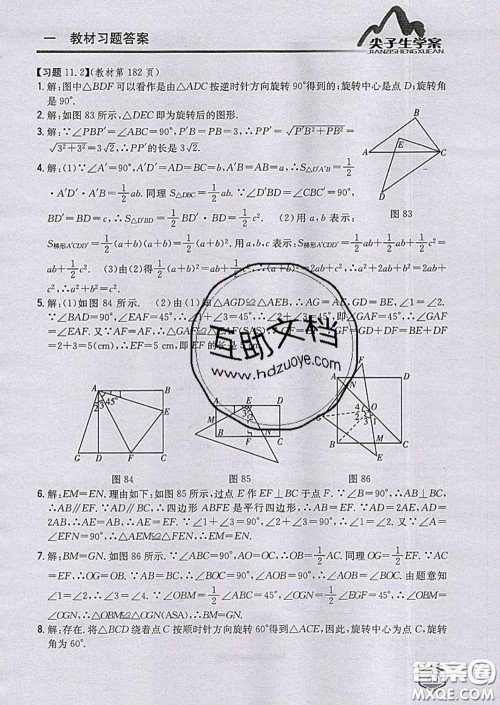 一 教材习题答案
尖子生学案
JIANZISHENGXUEAN
【习题 11.2】(教材第 182 页)
1. 解:图中△BDF 可以看作是由△ADC 按逆时针方向旋转 90°得到的;旋转中心是点 D;旋转角
是 90°.
2. 解:如图 83 所示,△DEC 即为旋转后的图形.
3. 解:∵∠PBP′=∠ABC=90°,P′B=PB=3,∴PP′=√(P′B²+PB²)=
√(3²+3²)=3√2,∴PP′的长是 3√2.
4. 解:(1)∵∠A′=90°,A′D′=AD=BC=b,A′B=AB=a,∴S△A′D′B=1/2
·A′D′·A′B=1/2ab. 同理 S△DBC=1/2ab. ∵∠D′BD=∠CBC′=90°,
BD′=BD=c,∴S△D′BD=1/2BD′·BD=1/2c². (2)用 a,b 表示:
S梯形A′CDD′=1/2(a+b)(a+b)=1/2(a+b)². 用 a,b,c 表示:S梯形A′CDD′=1/2ab+1/2ab+1/2c²=
ab+1/2c². (3)由(2)得 1/2(a+b)²=ab+1/2c²,∴a²+2ab+b²=2ab+c²,
∴a²+b²=c².
图 83
5. 解:(1)如图 84 所示. (2)由(1)知,△AGD≌△AEB,∴AG=AE,GD=BE,∠1=∠2.
∵∠BAD=90°,∠EAF=45°,∴∠1+∠3=45°,∴∠2+∠3=45°,即∠GAF=45°,∴∠GAF=
∠EAF. 又∵AF=AF,∴△GAF≌△EAF(SAS),∴GF=EF. ∵GF=GD+DF=BE+DF=
2+3=5(cm),∴EF=5 cm,即 EF 的长是 5 cm.
互助文档
www.hdzuoye.com
A B 1 2 3 45° E G D F C
图 84
图 85
图 86
6. 解:EM=EN. 理由如下:如图 85 所示,过点 E 作 EF⊥BC 于点 F. ∵∠B=90°,∴AB⊥BC,
∴AB∥EF. 又∵AD∥BC,∴四边形 ABFE 是平行四边形,∴AB=EF. ∵AD=2AB,AD=
2AE,∴AE=AB,∴AE=EF. ∵∠1+∠3=90°,∠2+∠3=90°,∴∠1=∠2. 又∵∠A=
∠EFN=90°,∴△AEM≌△FEN,∴EM=EN.
7. 解:BM=GN. 如图 86 所示. ∵∠ABC=90°,AO=OC,∴OB=1/2AC. 同理 OG=1/2EF. ∵AC
=EF,∴OG=OB. ∵∠OBM=1/2∠ABC=1/2×90°=45°,∠OGN=1/2∠EGF=45°,由题意知
∠1=∠2,∴∠3=∠4. 又∵∠OBM=∠OGN,∴△OBM≌△OGN(ASA),∴BM=GN.
8. 解:存在. 将△BCD 绕着点 C 按顺时针方向旋转 60°得到△ACE,因此,旋转中心为点 C,旋转
角为 60°.
答案圈
MXQE.COM